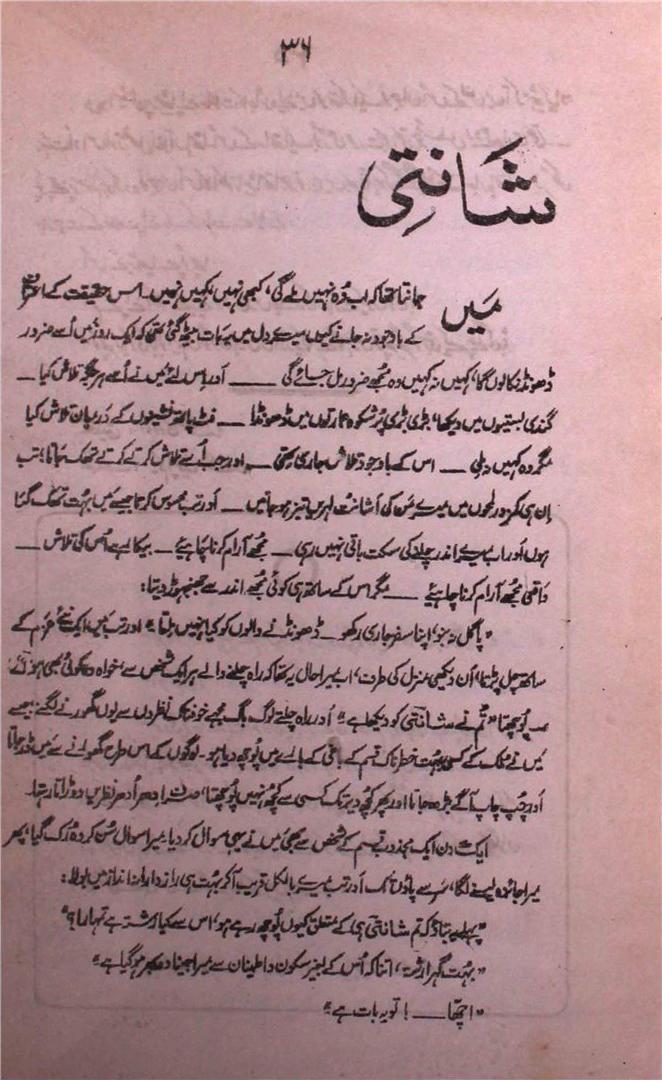 ۳۶
شَانتِی
مَیں جانتا تھا کہ اب وُہ نہیں ملے گی، کبھی نہیں، کہیں نہیں۔ اس حقیقت کے اعتراف
کے باوجود نہ جانے کیوں میرے دل میں یہ بات بیٹھ گئی تھی کہ ایک روز میں اُسے ضرور
ڈھونڈ نکالوں گا، کہیں نہ کہیں وہ مجھے ضرور مل جائے گی ــــ اور اِس لئے میں نے اُسے ہر جگہ تلاش کیا ــ
گندی بستیوں میں دیکھا، بڑی بڑی پُرشکوہ عمارتوں میں ڈھونڈا ــ فٹ پاتھ نشینوں کے درمیان تلاش کیا
مگر وہ کہیں نہ ملی ــ اس کے باوجود تلاش جاری تھی ــ اور جب اُسے تلاش کرتے کرتے تھک جاتا، تب
اِن ہی لمحوں میں میرے مَن کی اَشانت لہریں تیز ہو جاتیں ــ اور تب محسوس کرتا جیسے میں بہت تھک گیا
ہوں اور اب میرے اندر چلنے کی سکت باقی نہیں رہی ــ مجھے آرام کرنا چاہیئے ــ بیکار ہے اُس کی تلاش ــ
واقعی مجھے آرام کرنا چاہیئے ــــ مگر اس کے ساتھ ہی کوئی مجھے اندر سے جھنجھوڑ دیتا:
"پاگل نہ بنو، اپنا سفر جاری رکھو ــ ڈھونڈنے والوں کو کیا نہیں ملتا" اور تب میں ایک نئے عزم کے
ساتھ چل پڑتا، اَن دیکھی منزل کی طرف، اب میرا حال یہ تھا کہ راہ چلنے والے ہر ایک شخص سے، خواہ وہ کوئی بھی ہو،
پُوچھتا "تُم نے شانتی کو دیکھا ہے" اور راہ چلتے لوگ مجھے خوفناک نظروں سے یوں گھورنے لگتے جیسے
میں نے مُلک کے کسی بہت خطرناک قسم کے باغی کے بارے میں پُوچھ دیا ہو۔ لوگوں کے اس طرح گھورنے سے میں ڈر جاتا
اور چُپ چاپ آگے بڑھ جاتا اور پھر کچھ دیر تک کسی سے کچھ نہیں پُوچھتا، صرف اِدھر اُدھر نظریں دوڑاتا رہتا۔
ایک دن ایک مجذوب قسم کے شخص سے بھی میں نے یہی سوال کر دیا۔ میرا سوال سُن کر وہ رُک گیا، پھر
میرا جائزہ لینے لگا، سَر سے پاؤں تک اور تب میرے بالکل قریب آ کر بہت ہی رازدارانہ انداز میں بولا:
"پہلے یہ بتاؤ کہ تم شانتی ہی کے متعلق کیوں پُوچھ رہے ہو، اس سے کیا رشتہ ہے تمہارا؟"
"بہُت گہرا رشتہ، اتنا کہ اُس کے بغیر سکون و اطمینان سے میرا جینا دوبھر ہو گیا ہے"
"اچھّا ــــ ! تو یہ بات ہے"